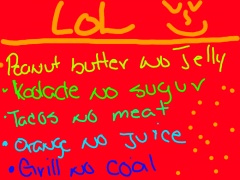 LOL
Peanut butter no Jelly
Koolade no sugur
Tacos no meat
Orange no Juice
Grill no coal